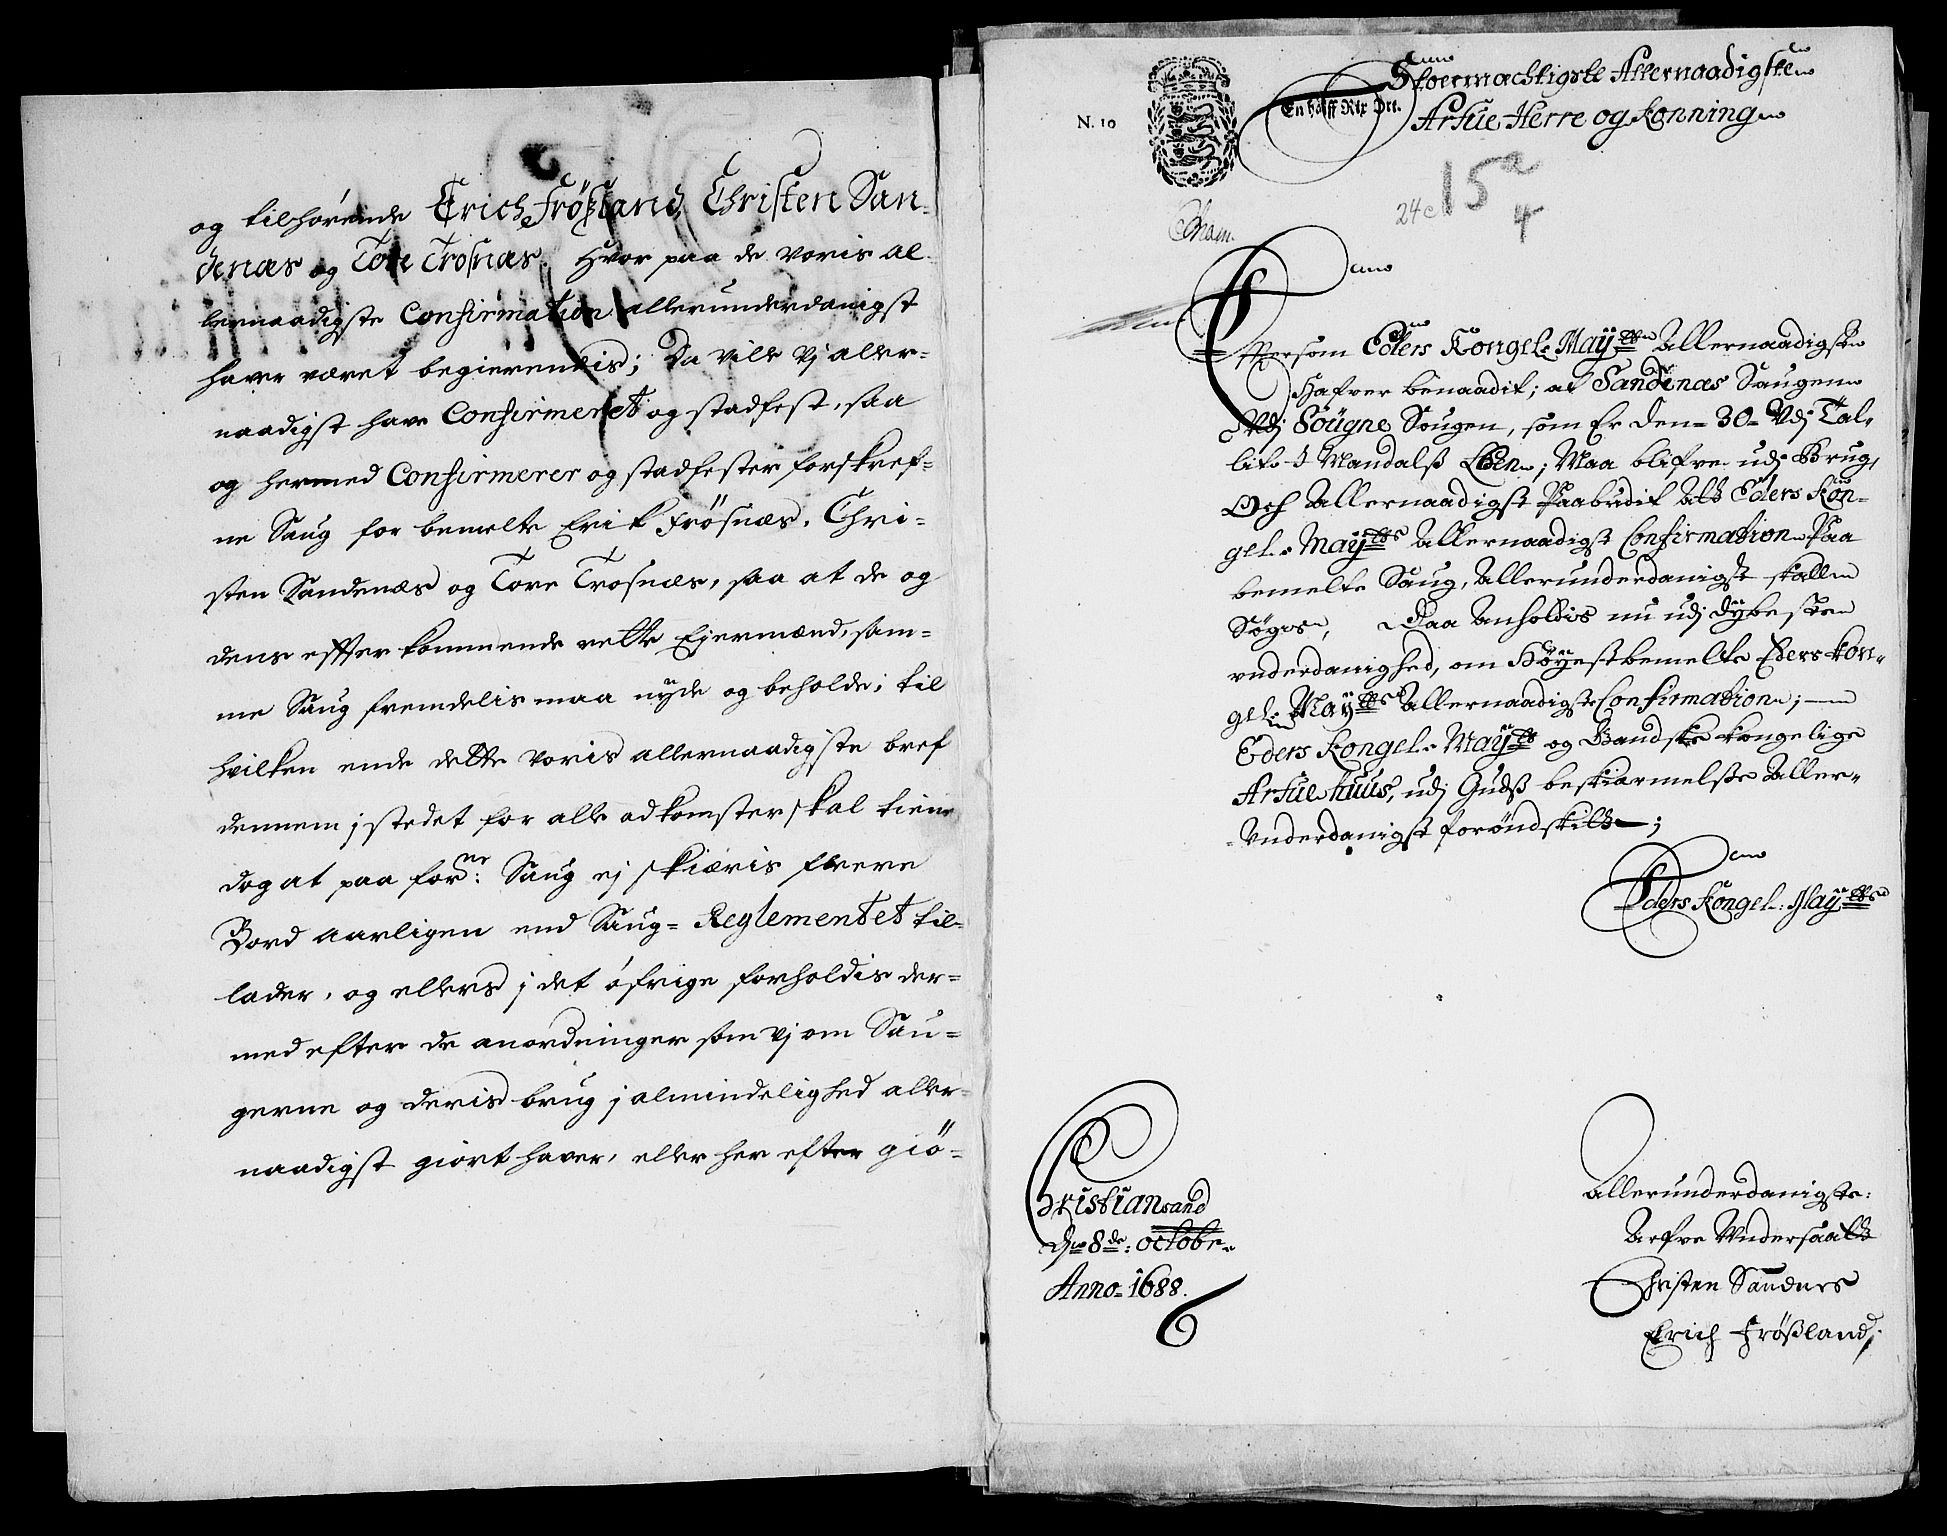 og tilhørende Erich Frösland, Christen San-
denæs og Tore Trosnæs. Hvor paa de voris al-
lernaadigste Confirmation allerunderdanigst
haver været begierendis; Da ville Vj aller-
naadigst have Confirmeret og stadfest, saa
og hermed Confirmerer og stadfester forskref-
ne Saug for bemelte Erik Frösnæs, Chri-
sten Sandenæs og Tore Trosnæs, saa at de og
dens effterkommende rette Ejermænd, sam-
me Saug fremdelis maa nyde og beholde; til
hvilken ende dette voris allernaadigste bref
dennem j stedet for alle adkomster skal tiene
dog at paa forne: Saug ej skiæris flere
Bord aarligen end Saug-Reglementet til-
lader, og ellers j det öfrige forholdis der-
med efter de anordninger som vj om Sau-
gerne og deris brug j almindelighed aller-
naadigst giort haver, eller her efter giö-
N. 10
En halff Rix Ort.
Stoermæchtigste Allernaadigste
Arfue Herre og Konning
15
24c
4
Efftersom Eders Kongel. Mayts Allernaadigste
Hafver benaadit; at Sandenæs Saugen
Udj Söugne Sougen, som Er den 30 Udj Tal,
lit i Mandalß Lehn; Maa blifve udj Brug,
Och Allernaadigst Paabudit Att Eders Kon-
gel. Mayts Allernaadigst Confirmation Paa
bemelte Saug, Allerunderdanigst skulle
Søges, Daa Anholdis nu udj dybeste
vnderdanighed, om Höyestbemelte Eders Kon-
gel. Mayts Allernaadigste Confirmation;
Eders Kongel. Mayts og Gandske Kongelige
Arfue Huus, udj Gudß beskiermelse Aller-
Vnderdanigst forönskilt;
Eders Kongel: Mayts
Christiansand
dn 8de: octobr.
Anno 1688.
Allerunderdanigste:
Arfve Undersaatte
Christen Sandnes
Erich Frößland